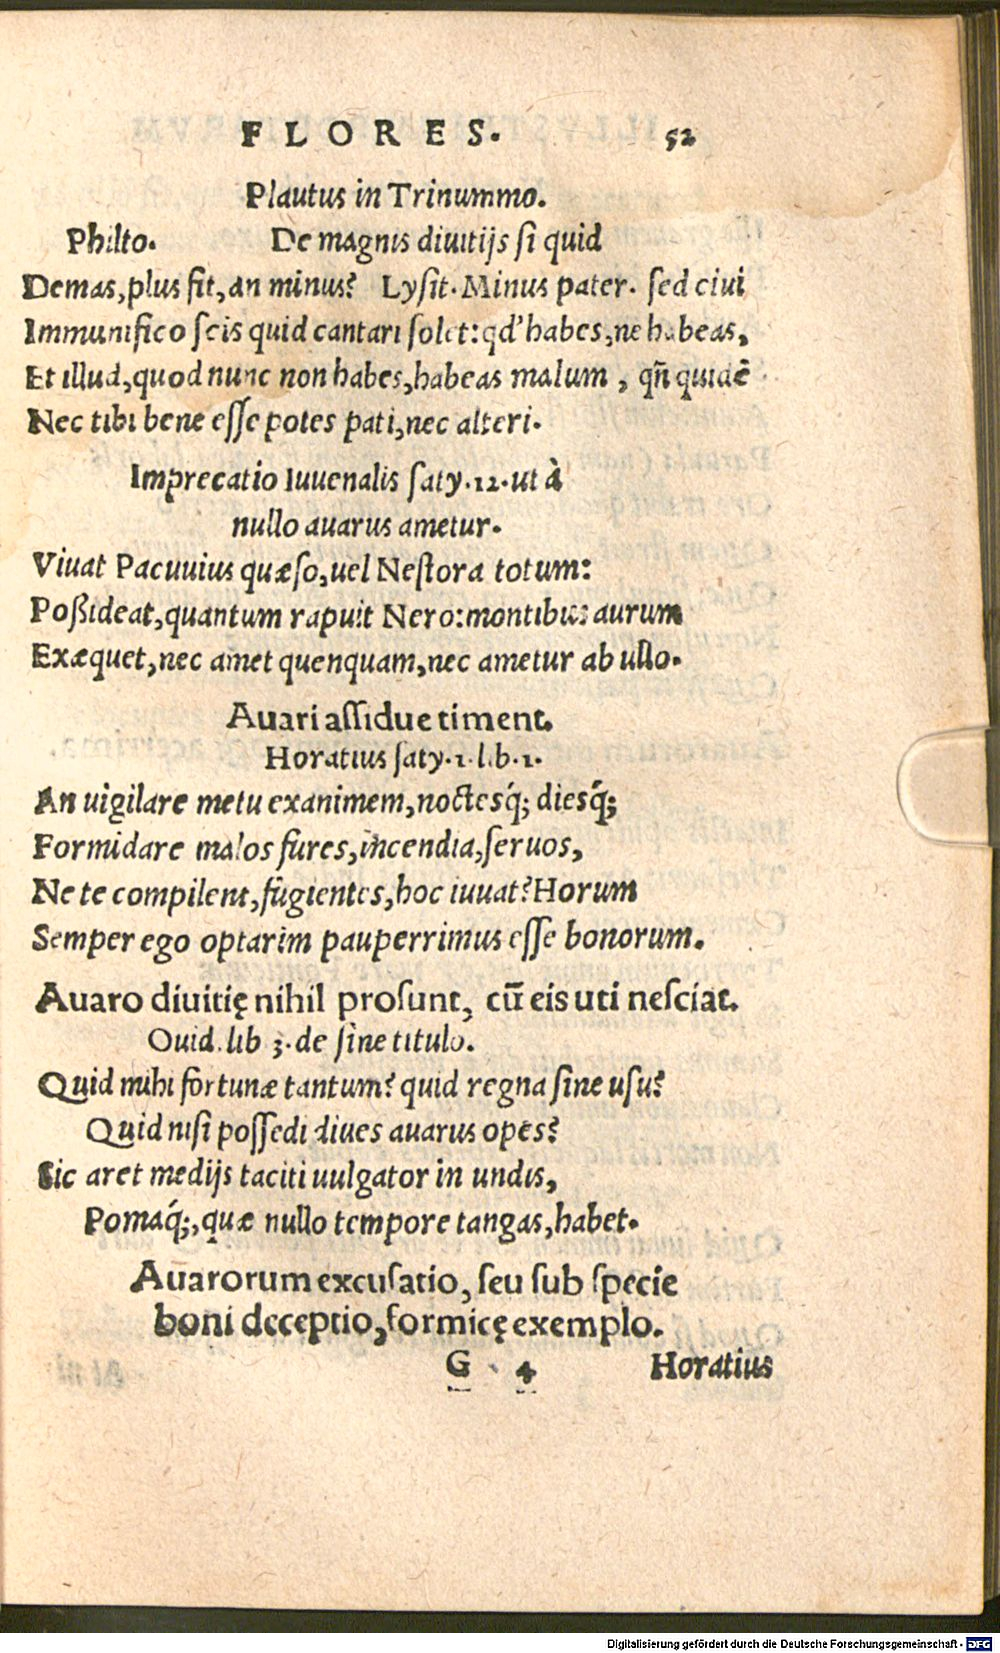 FLORES. 52
Plautus in Trinummo.
Philto. De magnis diuitijs ſi quid
Demas, plus fit, an minus? Lyſit. Minus pater. ſed ciui
Immunifico ſcis quid cantari ſolet: qd' habes, ne habeas,
Et illud, quod nunc non habes, habeas malum, qñ quidē
Nec tibi bene eſſe potes pati, nec alteri.
Imprecatio Iuuenalis ſaty. 12. ut à
nullo auarus ametur.
Viuat Pacuuius quæſo, uel Neſtora totum:
Poßideat, quantum rapuit Nero: montibus aurum
Exæquet, nec amet quenquam, nec ametur ab ullo.
Auari aſſidue timent.
Horatius ſaty. 1. lib. 1.
An uigilare metu exanimem, noctesq́; diesq́;
Formidare malos fures, incendia, ſeruos,
Ne te compilent, fugientes, hoc iuuat? Horum
Semper ego optarim pauperrimus eſſe bonorum.
Auaro diuitię nihil proſunt, cū eis uti neſciat.
Ouid. lib 3. de ſine titulo.
Quid mihi fortunæ tantum? quid regna ſine uſu?
Quid niſi poſſedi diues auarus opes?
Sic aret medijs taciti uulgator in undis,
Pomaq́;, quæ nullo tempore tangas, habet.
Auarorum excuſatio, ſeu ſub ſpecie
boni deceptio, formicę exemplo.
G 4 Horatius
Digitalisierung gefördert durch die Deutsche Forschungsgemeinschaft - DFG